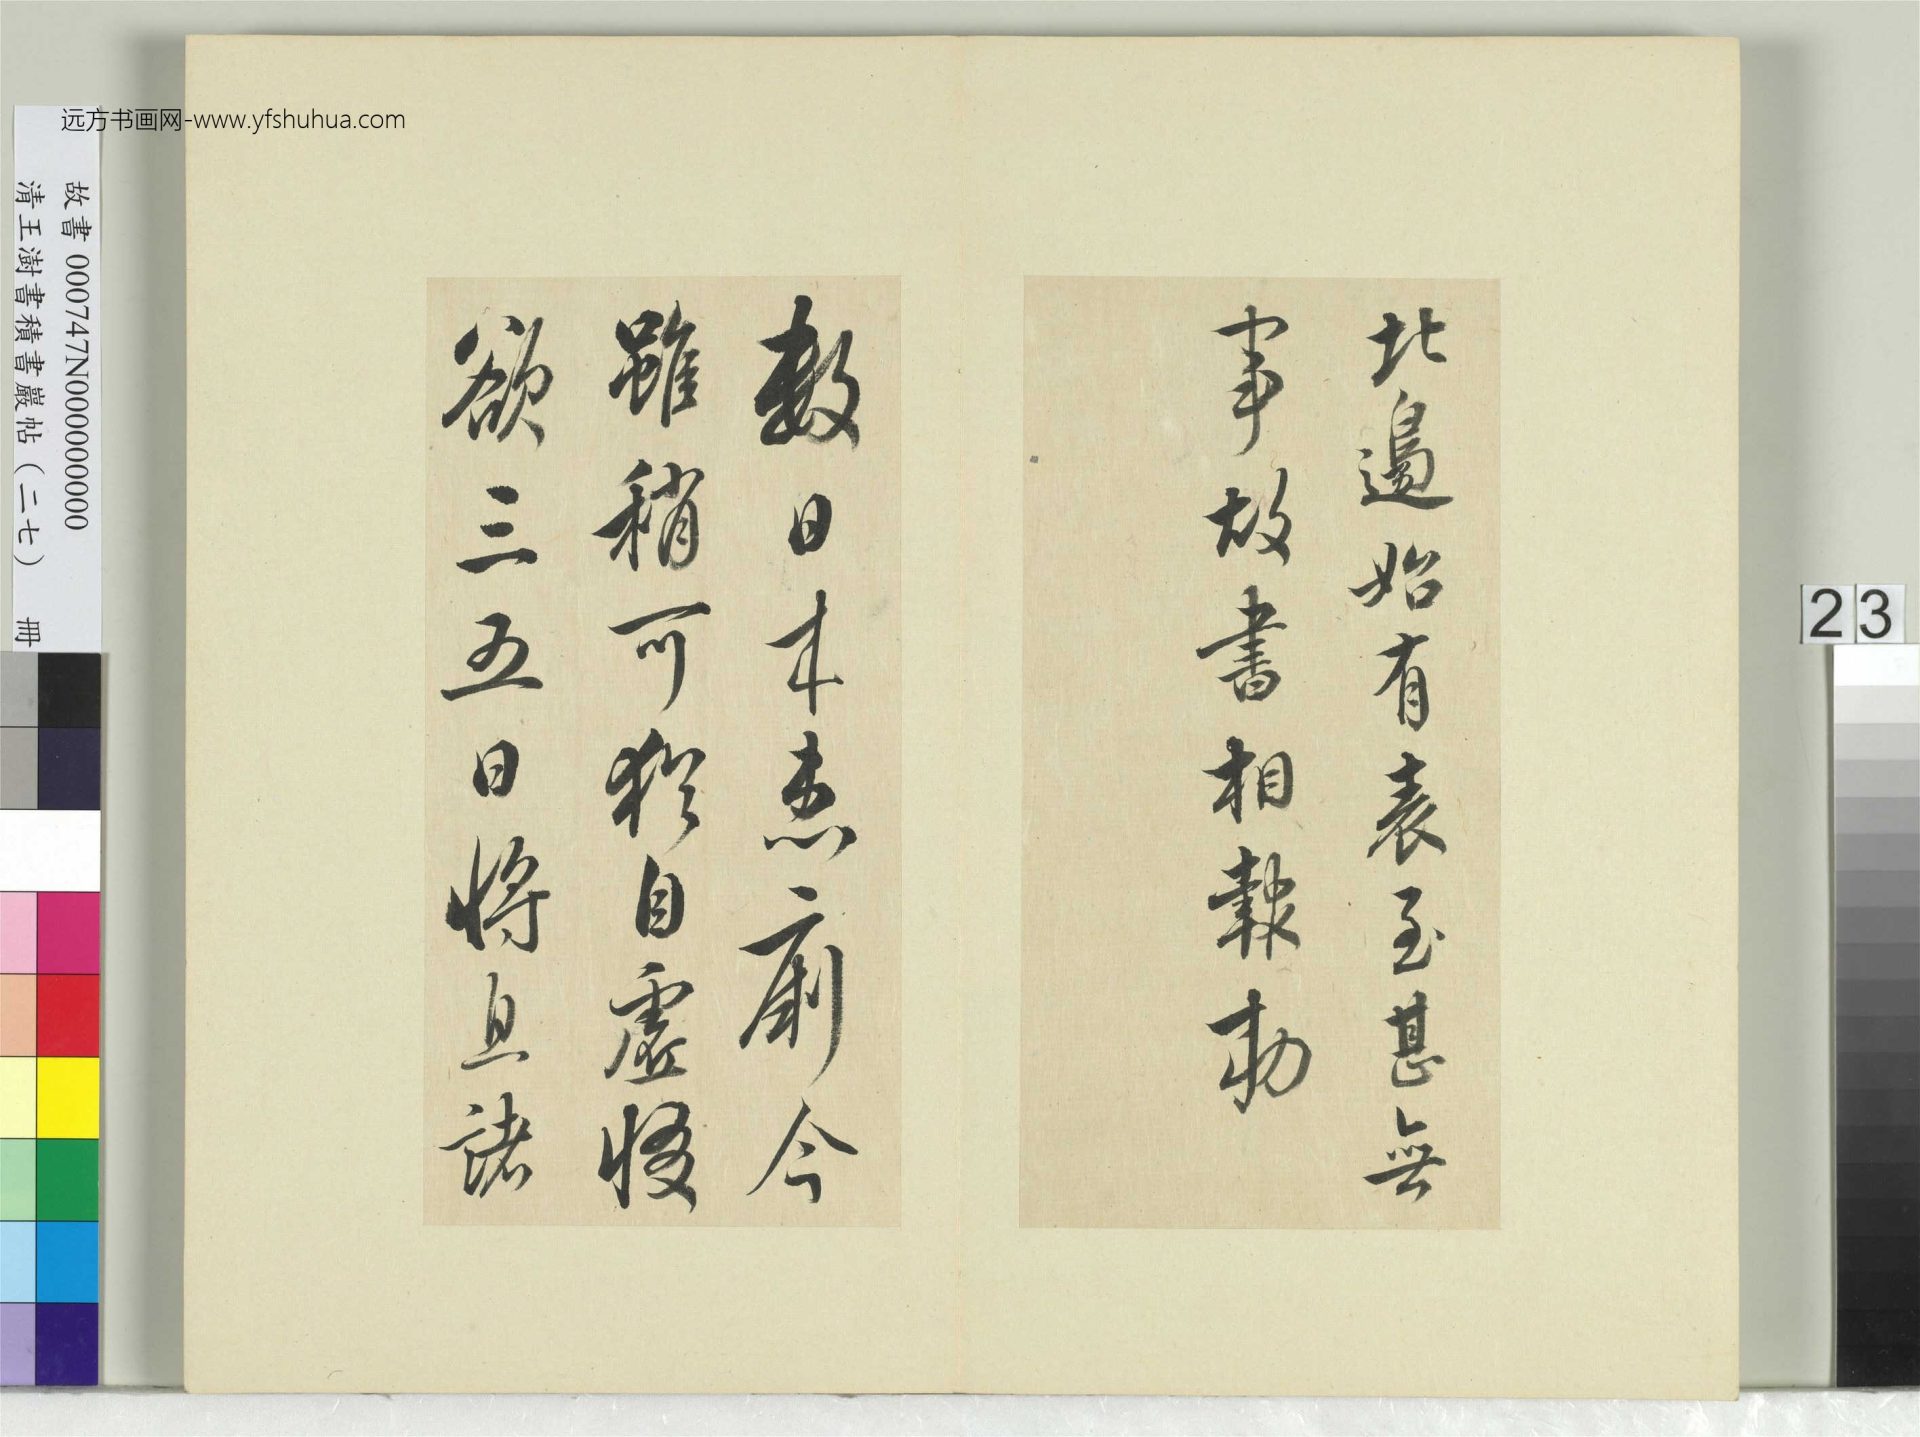 远方书画网-www.yfshuhua.com
故書 000747N000000000
清王澍書積書巖帖（二七） 冊
23
北邊始有表至甚無
事故書相報勅
數日來患痢今
雖稍可猶自虛惙
欲三五日將息諸